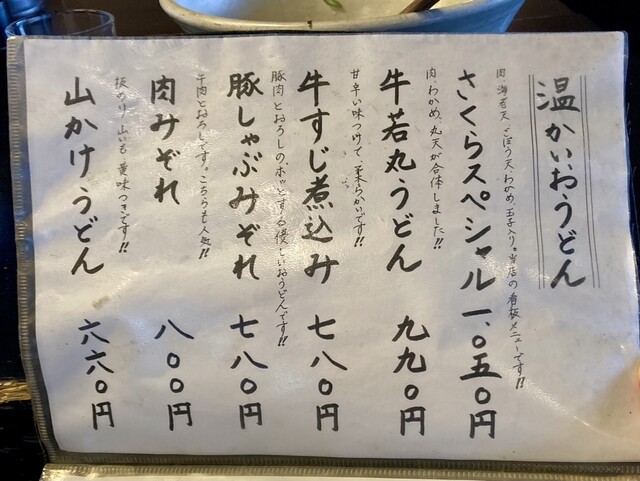 温かいおうどん
肉、海老天、ごぼう天、わかめ、玉子入り。当店の看板メニューです!!
さくらスペシャル 一、〇五〇円
肉、わかめ、丸天が合体しました!!
牛若丸うどん 九九〇円
甘辛い味つけで、柔らかいです!!
牛すじ煮込み 七八〇円
豚肉とおろしの、ホッとする優しいおうどんです!!
豚しゃぶみぞれ 七八〇円
牛肉とおろしです。こちらも人気!!
肉みぞれ 八〇〇円
板のり、山いも、黄味つきです!!
山かけうどん 六六〇円